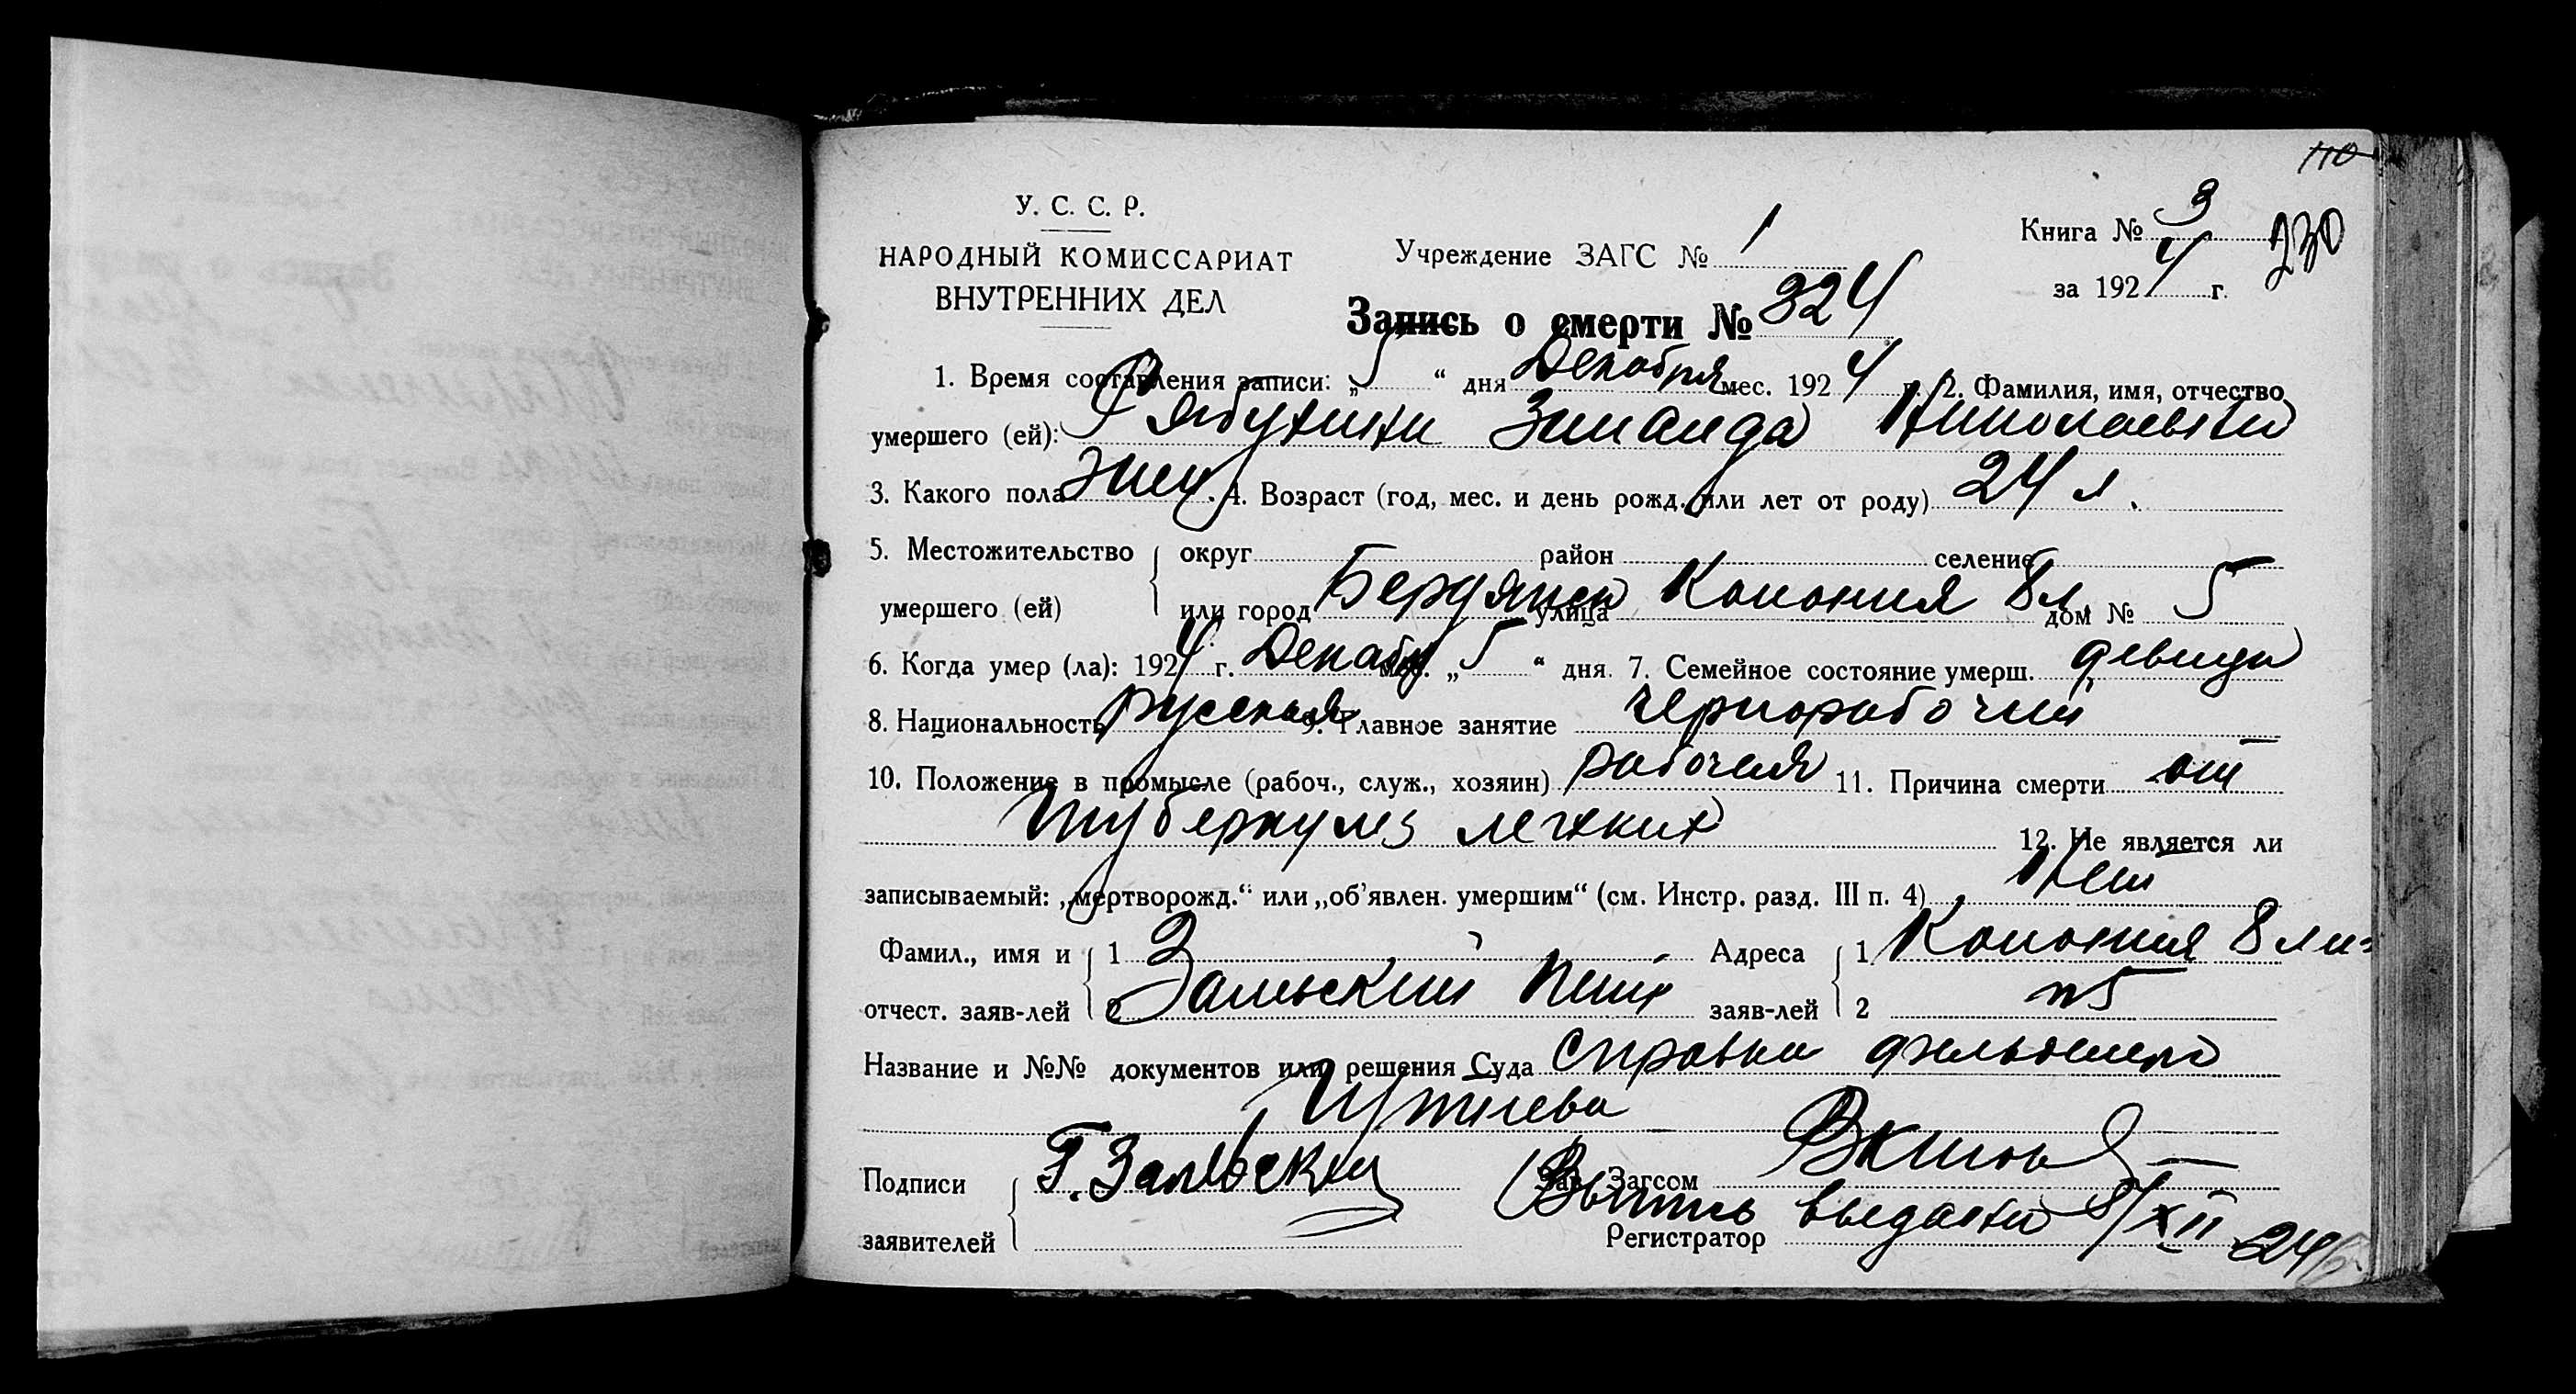 110
У. С. С. Р.
НАРОДНЫЙ КОМИССАРИАТ
ВНУТРЕННИХ ДЕЛ
Учреждение ЗАГС № 1
Книга № 3 230
за 1924 г.
Запись о смерти № 324
1. Время составления записи: „5“ дня Декабря мес. 1924 г. 2. Фамилия, имя, отчество
умершего (ей): Рябухина Зинаида Николаевна
3. Какого пола жен. 4. Возраст (год, мес. и день рожд. или лет от роду) 24 л.
5. Местожительство округ район селение
умершего (ей) или город Бердянск улица Колония 8 л. дом № 5
6. Когда умер (ла): 1924 г. Декабр мес. „5“ дня. 7. Семейное состояние умерш. девица
8. Национальность русская 9. Главное занятие чернорабочий
10. Положение в промысле (рабоч., служ., хозяин) рабочая 11. Причина смерти от
туберкулез легких 12. Не является ли
записываемый: „мертворожд.“ или „об'явлен. умершим“ (см. Инстр. разд. III п. 4) Нет
Фамил., имя и 1 Адреса 1 Колония 8 лин
отчест. заяв-лей 2 Зальский заяв-лей 2 n5
Название и №№ документов или решения Суда Справка фельдшера
Подписи Г. Зальский Зав. Загсом
заявителей Регистратор Выпись выдана 8/XII 24